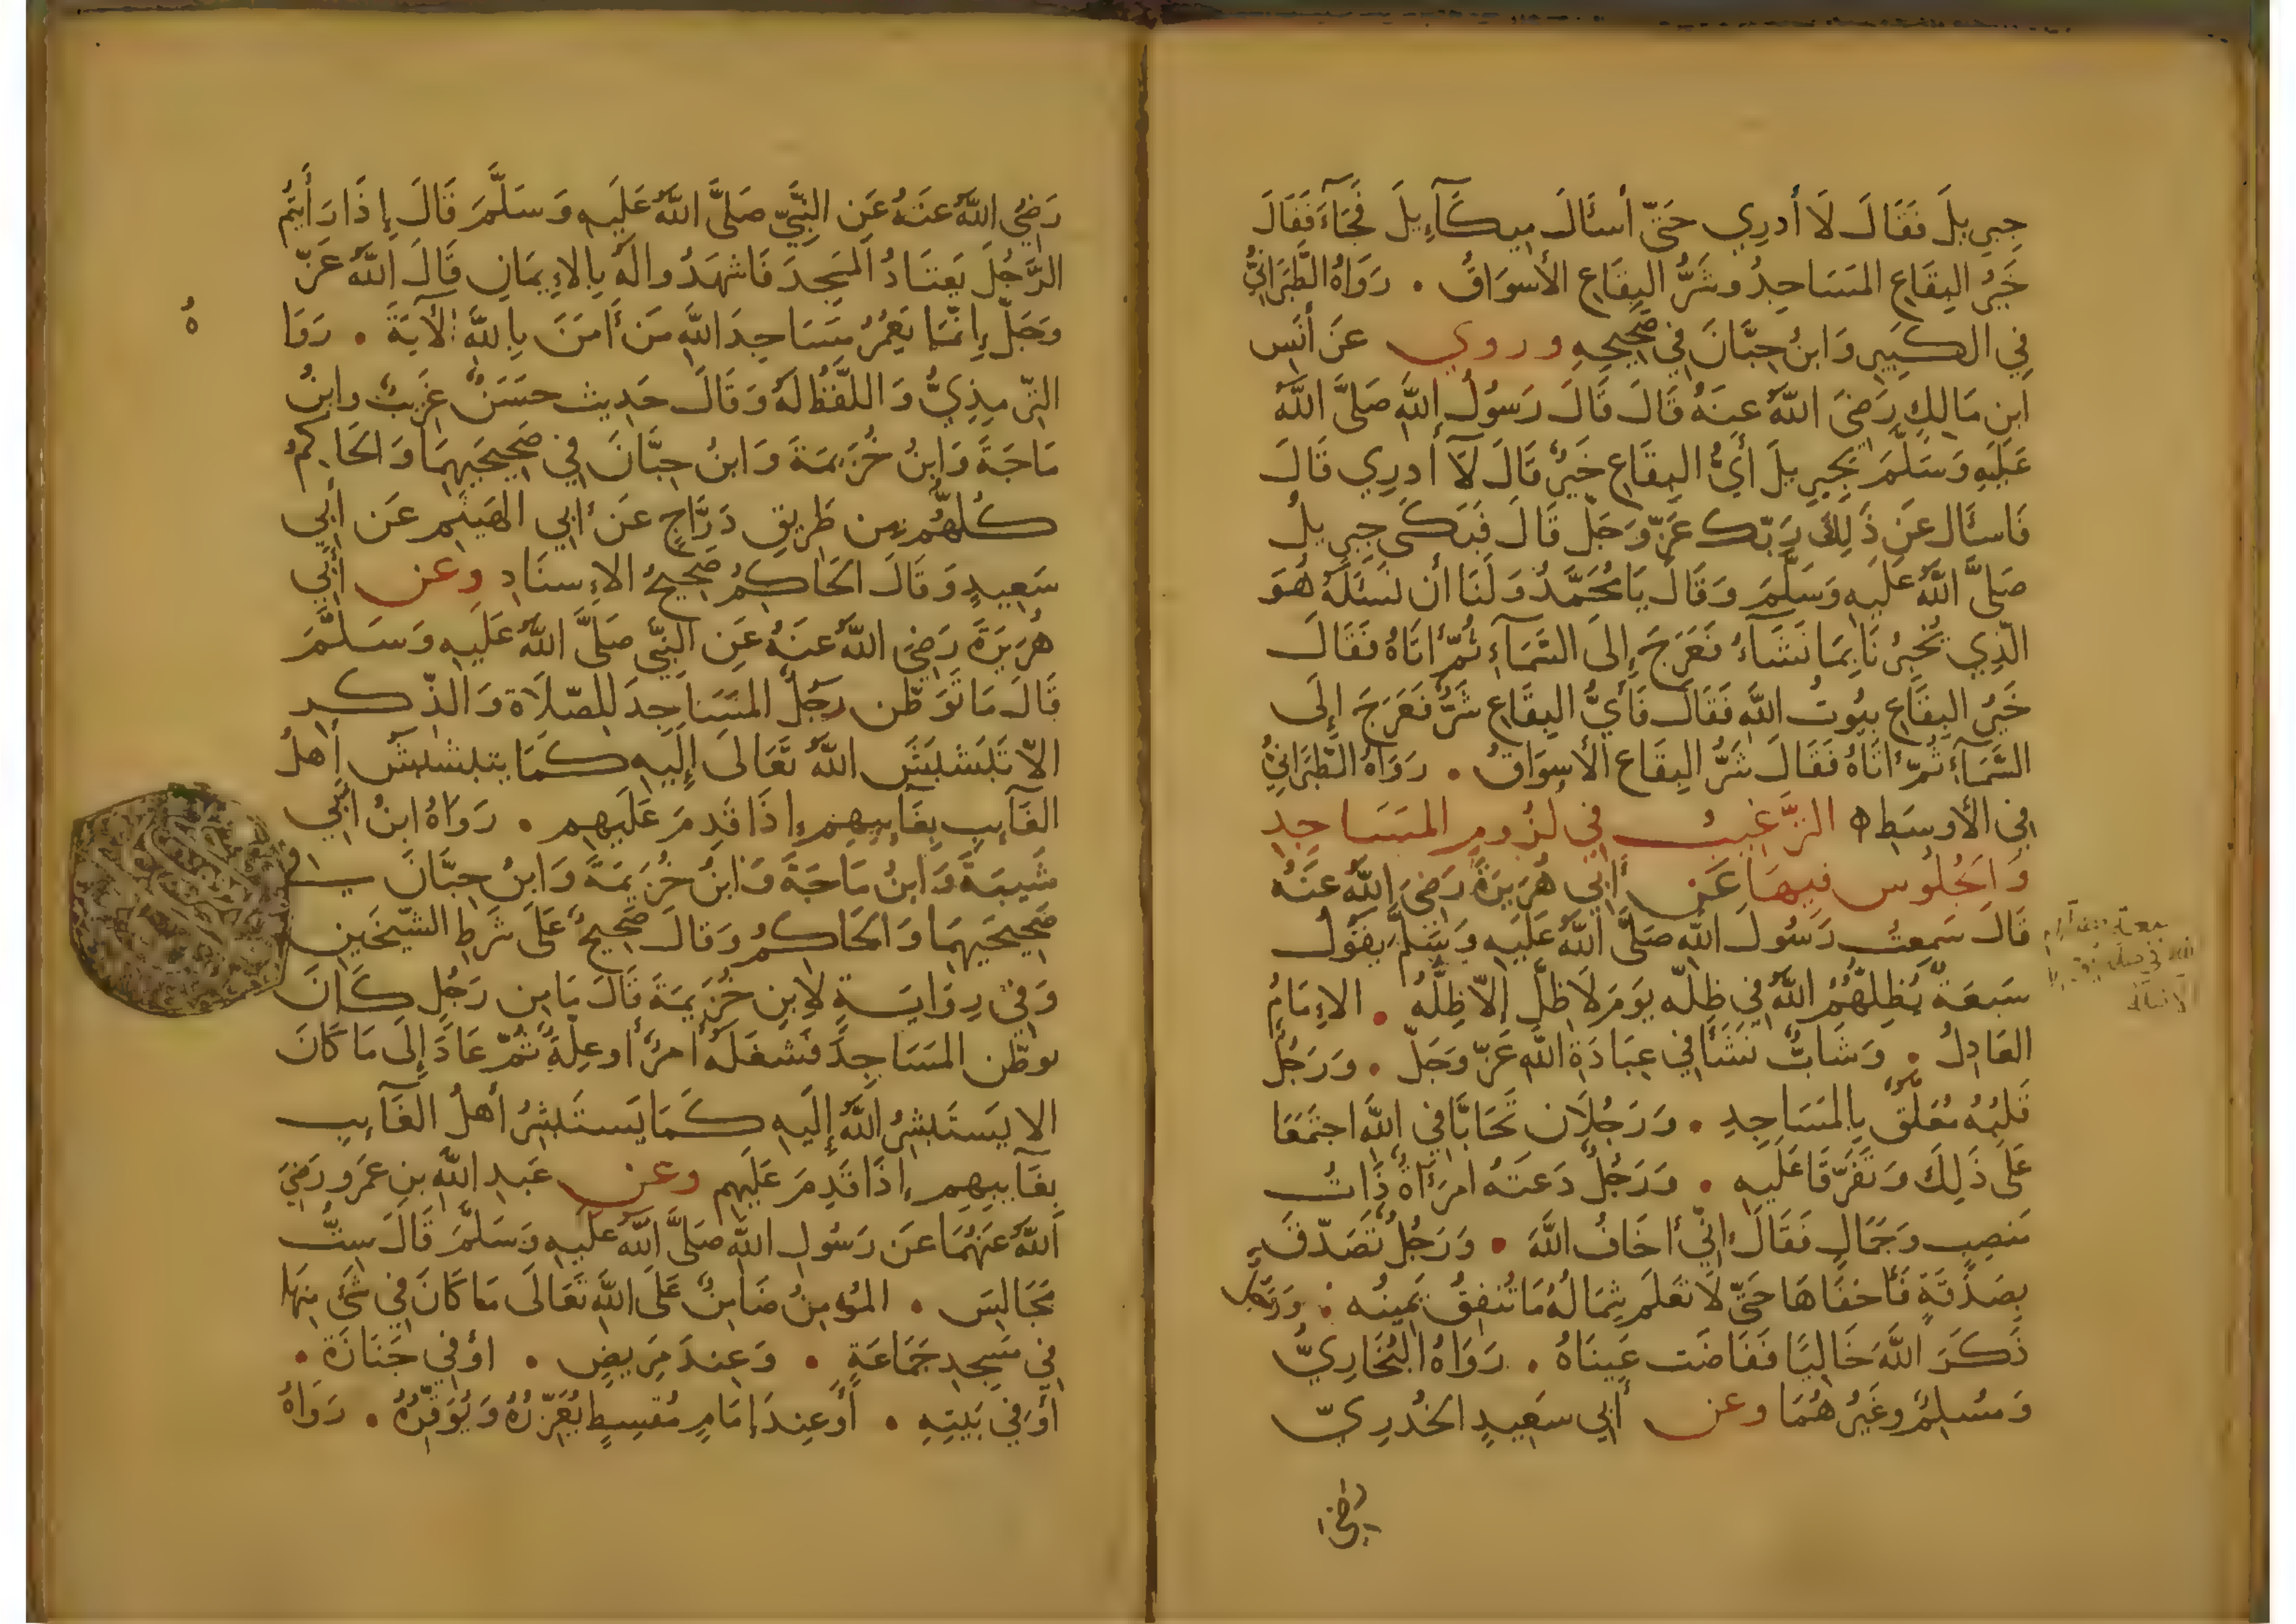 جِبرِيلَ فَقَالَ لَا أَدرِي حَتَّى أَسئَالَ مِيكَآءِيلَ فَجَآءَ فَقَالَ
خَيرُ البِقَاعِ المَسَاجِدُ وشَرُّ البِقَاعِ الأَسوَاقُ . رَوَاهُ الطَّبَرَانِيُّ
فِي الكَبِيرِ وَابنُ حِبَّانَ فِي صَحِيحِهِ وروي عَن أَنَسِ
ابنِ مَالِكٍ رَضِيَ اللَّهُ عَنهُ قَالَ قَالَ رَسُولُ اللَّهِ صَلَّى اللَّهُ
عَلَيهِ وَسَلَّمَ لِجِبرِيلَ أَيُّ البِقَاعِ خَيرٌ قَالَ لَآ أَدرِي قَالَ
فَاسئَال عَن ذَلِكَ رَبّك عَزَّ وَجَلَّ قَالَ فَبَكَى جِبرِيلُ
صَلَّى اللَّهُ عَلَيهِ وَسَلَّمَ وَقَالَ يَا مُحَمَّدُ وَلَنَا أَن نَسئَلَهُ هُوَ
الَّذِي يُخبِرُنَا بِمَا نَشَآءُ فَعَرَجَ إِلَى السَّمَآءِ ثُمَّ أَتَاهُ فَقَالَ
خَيرُ البِقَاعِ بيُوتُ اللَّهِ فَقَالَ فَأَيُّ البِقَاعِ شَرٌّ فَعَرَجَ إِلَى
السَّمَآءِ ثُمَّ أَتَاهُ فَقَالَ شَرُّ البِقَاعِ الأَسوَاقُ . رَوَاهُ الطَّبَرَانِيُّ
فِي الأَوسَطِ ه التَّرغِيبُ فِي لزُومِ المَسَاجِدِ
وَالجُلُوس فِيهَا عَن أَبِي هُرَيرَةَ رَضِيَ اللَّهُ عَنهُ
قَالَ سَمِعتُ رَسُولَ اللَّهِ صَلَّى اللَّهُ عَلَيهِ وَسَلَّمَ يَقُولُ
سَبعَةٌ يُظِلُّهُمُ اللَّهُ فِي ظِلِّهِ يَومَ لَا ظِلَّ إِلَّا ظِلُّهُ . الإِمَامُ
العَادِلُ . وَشَابٌّ نَشَأَ فِي عِبَادَةِ اللَّهِ عَزَّ وَجَلَّ . وَرَجُلٌ
قَلبُهُ مُعَلَّقٌ بِالمَسَاجِدِ . وَرَجُلَانِ تَحَابَّا فِي اللَّهِ اجتَمَعَا
عَلَى ذَلِكَ وَتَفَرَّقَا عَلَيهِ . وَرَجُلٌ دَعَتهُ امرَأَةٌ ذَاتُ
مَنصِبٍ وَجَمَالٍ فَقَالَ إِنِّي أَخَافُ اللَّهَ . وَرَجُلٌ تَصَدَّقَ
بِصَدَقَةٍ فَأَخفَاهَا حَتَّى لَا تَعلَمَ شِمَالُهُ مَا تُنفِقُ يَمِينُه . وَرَجُلٌ
ذَكَرَ اللَّهَ خَالِيًا فَفَاضَت عَينَاهُ . رَوَاهُ البُخَارِيُّ
وَمُسلِمٌ وَغَيرُهُمَا وعن أَبِي سَعِيدٍ الخُدرِيّ
رَضِيَ
رَضِيَ اللَّهُ عَنهُ عَنِ النَّبِيِّ صَلَّى اللَّهُ عَلَيهِ وَسَلَّمَ قَالَ إِذَا رَأَيتُم
الرَّجُلَ يَعتَادُ المَسجِدَ فَاشهَدُوا لَهُ بِالإِيمَانِ قَالَ اللَّهُ عَزَّ
وَجَلَّ إِنَّمَا يَعمُرُ مَسَاجِدَ اللَّهِ مَن أَمَنَ بِاللَّهِ الأَيَةَ . رَوَا
التِّرمِذِيُّ وَاللَّفظُ لَهُ وَقَالَ حَدِيث حَسَنٌ غَرِيبٌ وابنُ
مَاجَةَ وَابنُ خُزَيمَةَ وَابنُ حِبَّانَ فِي صَحِيحَيهِمَا وَالحَاكِمُ
كُلُّهُم مِن طَرِيقِ دَرَّاجٍ عَن أَبِي الهَيثَمِ عَن أَبِي
سَعِيدٍ وَقَالَ الحَاكِمُ صَحِيحُ الإِسنَادِ وعن أَبِي
هُرَيرَةَ رَضِيَ اللَّهُ عَنهُ عَنِ النَّبِيِّ صَلَّى اللَّهُ عَلَيهِ وَسَلَّمَ
قَالَ مَا تَوَطَّن رَجُلٌ المَسَاجِدَ لِلصَّلَاة وَالذِّكرِ
الّا تَبَشبَشَ اللَّهُ تَعَالَى إِلَيهِ كَمَا يتبشبشُ أَهلُ
الغَآيِبِ بِغَآيِبِهِم إِذَا قَدِمَ عَلَيهِم . رَوَاهُ ابنُ أَبِي
شَيبَةَ وَابنُ مَاجَةَ وَابنُ خُزَيمَةَ وَابنُ حِبَّانَ في
صَحِيحَيهِمَا وَالحَاكِمُ وَقالَ صَحِيحٌ عَلَى شَرطِ الشَّيخَينِ
وَفِي رِوَايَةٍ لِابنِ خُزَيمَةَ قَالَ مَا مِن رَجُلٍ كَانَ
توطَّن المَسَاجِدَ فَشَغَلَهُ أَمرٌ أَو عِلَّةٌ ثُمَّ عَادَ إِلَى مَا كَانَ
الا يَستَبشِرُ اللَّهُ إِلَيهِ كَمَا يَستَبشِرُ أَهلُ الغَآيِبِ
بِغَآيِبِهِم إِذَا قَدِمَ عَلَيهِم وعن عَبدِ اللَّهِ بنِ عَمرو رَضِيَ
اللَّهُ عَنهُمَا عَن رَسُولِ اللَّهِ صَلَّى اللَّهُ عَلَيهِ وَسَلَّمَ قَالَ سِتُّ
مَجَالِسَ . المُؤمِنُ ضَامِنٌ عَلَى اللَّهِ تَعَالَى مَا كَانَ فِي شَئ مِنهَا
فِي مَسجِدِ جَمَاعَةٍ . وَعِندَ مَرِيضٍ . أَو فِي جَنَازَة .
أَو فِي بَيتِهِ . أَو عِندَ إِمَامٍ مُقسِطٍ يُعَزِّرُهُ وَيُوَقِّرُهُ . رَوَاهُ